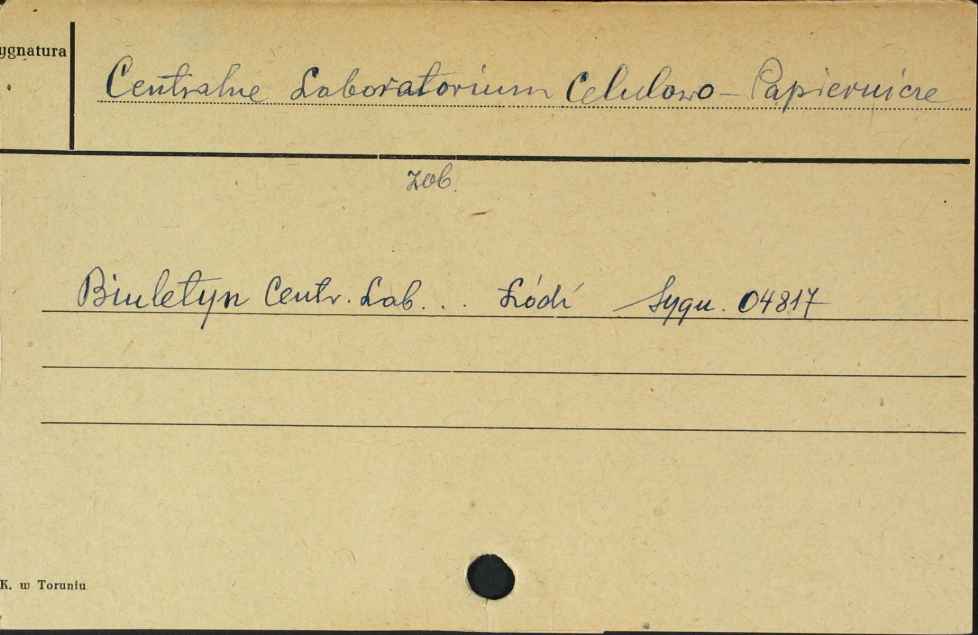 ygnatura
Centralne Laboratorium Celulozo - Papiernicze
zob.
Biuletyn Centr. Lab. . . Łódź Sygn. 04817
K. w Toruniu